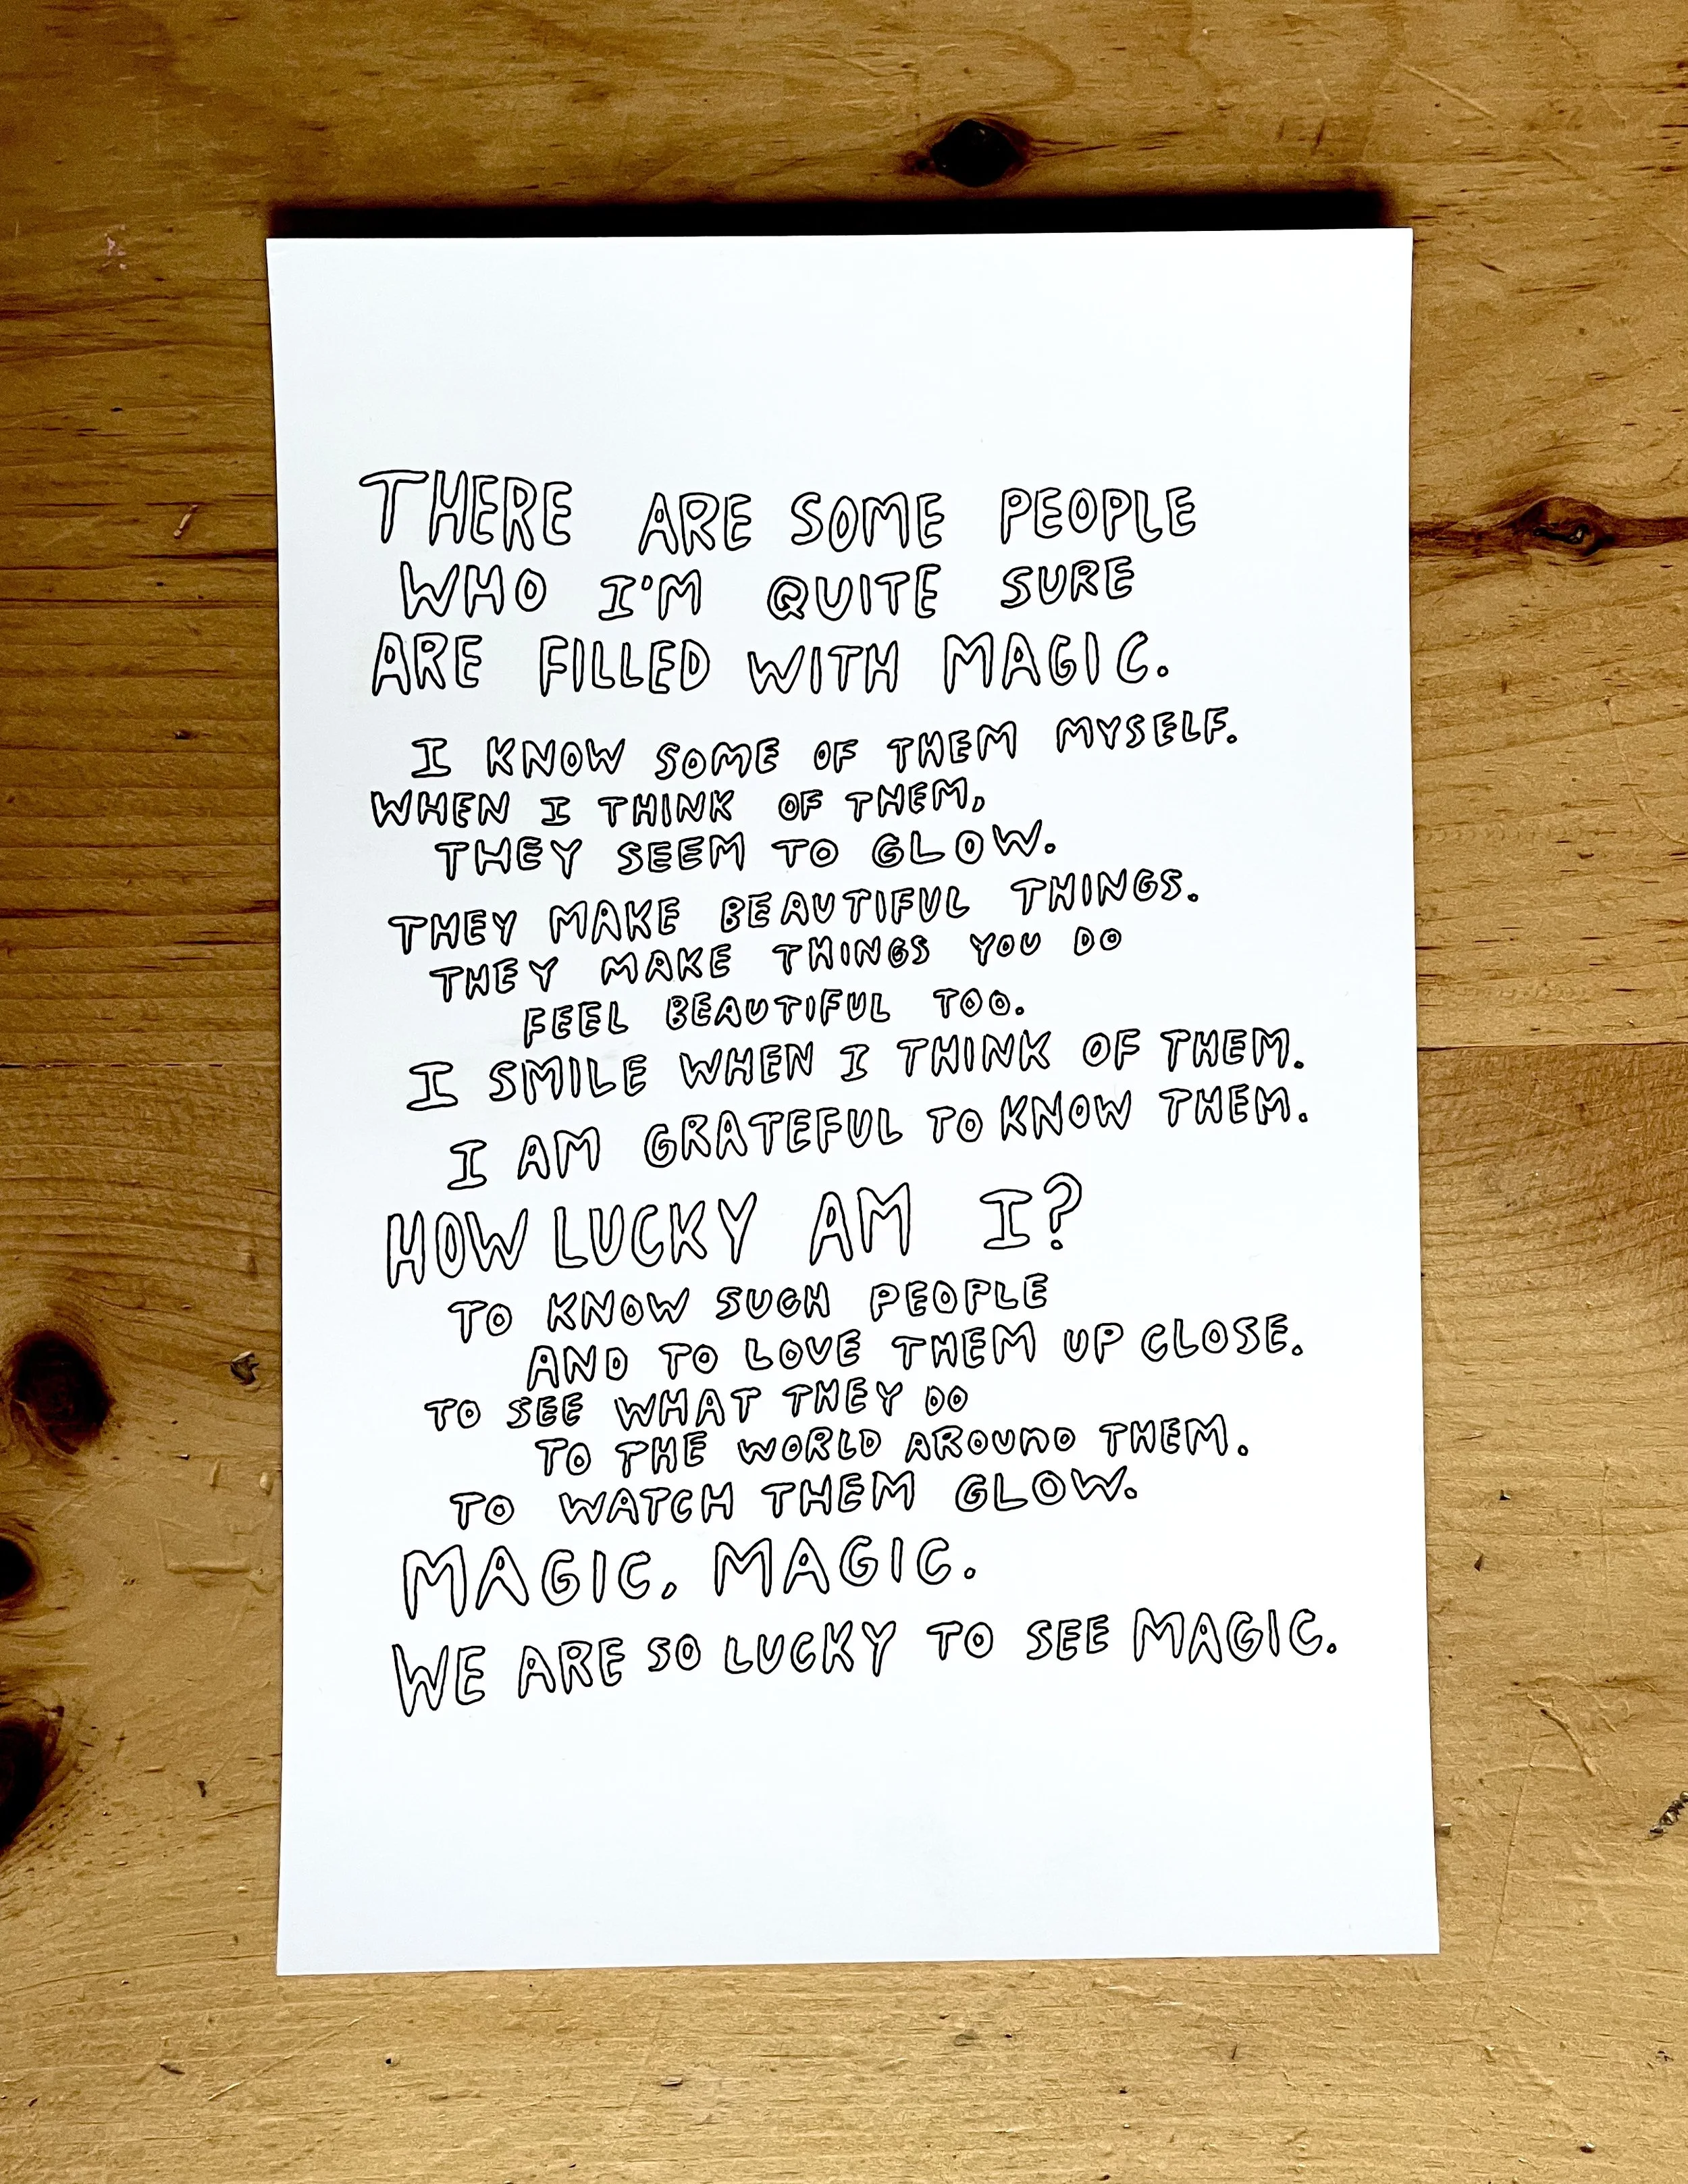 THERE ARE SOME PEOPLE
WHO I'M QUITE SURE
ARE FILLED WITH MAGIC.
I KNOW SOME OF THEM MYSELF.
WHEN I THINK OF THEM,
THEY SEEM TO GLOW.
THEY MAKE BEAUTIFUL THINGS.
THEY MAKE THINGS YOU DO
FEEL BEAUTIFUL TOO.
I SMILE WHEN I THINK OF THEM.
I AM GRATEFUL TO KNOW THEM.
HOW LUCKY AM I?
TO KNOW SUCH PEOPLE
AND TO LOVE THEM UP CLOSE.
TO SEE WHAT THEY DO
TO THE WORLD AROUND THEM.
TO WATCH THEM GLOW.
MAGIC, MAGIC.
WE ARE SO LUCKY TO SEE MAGIC.